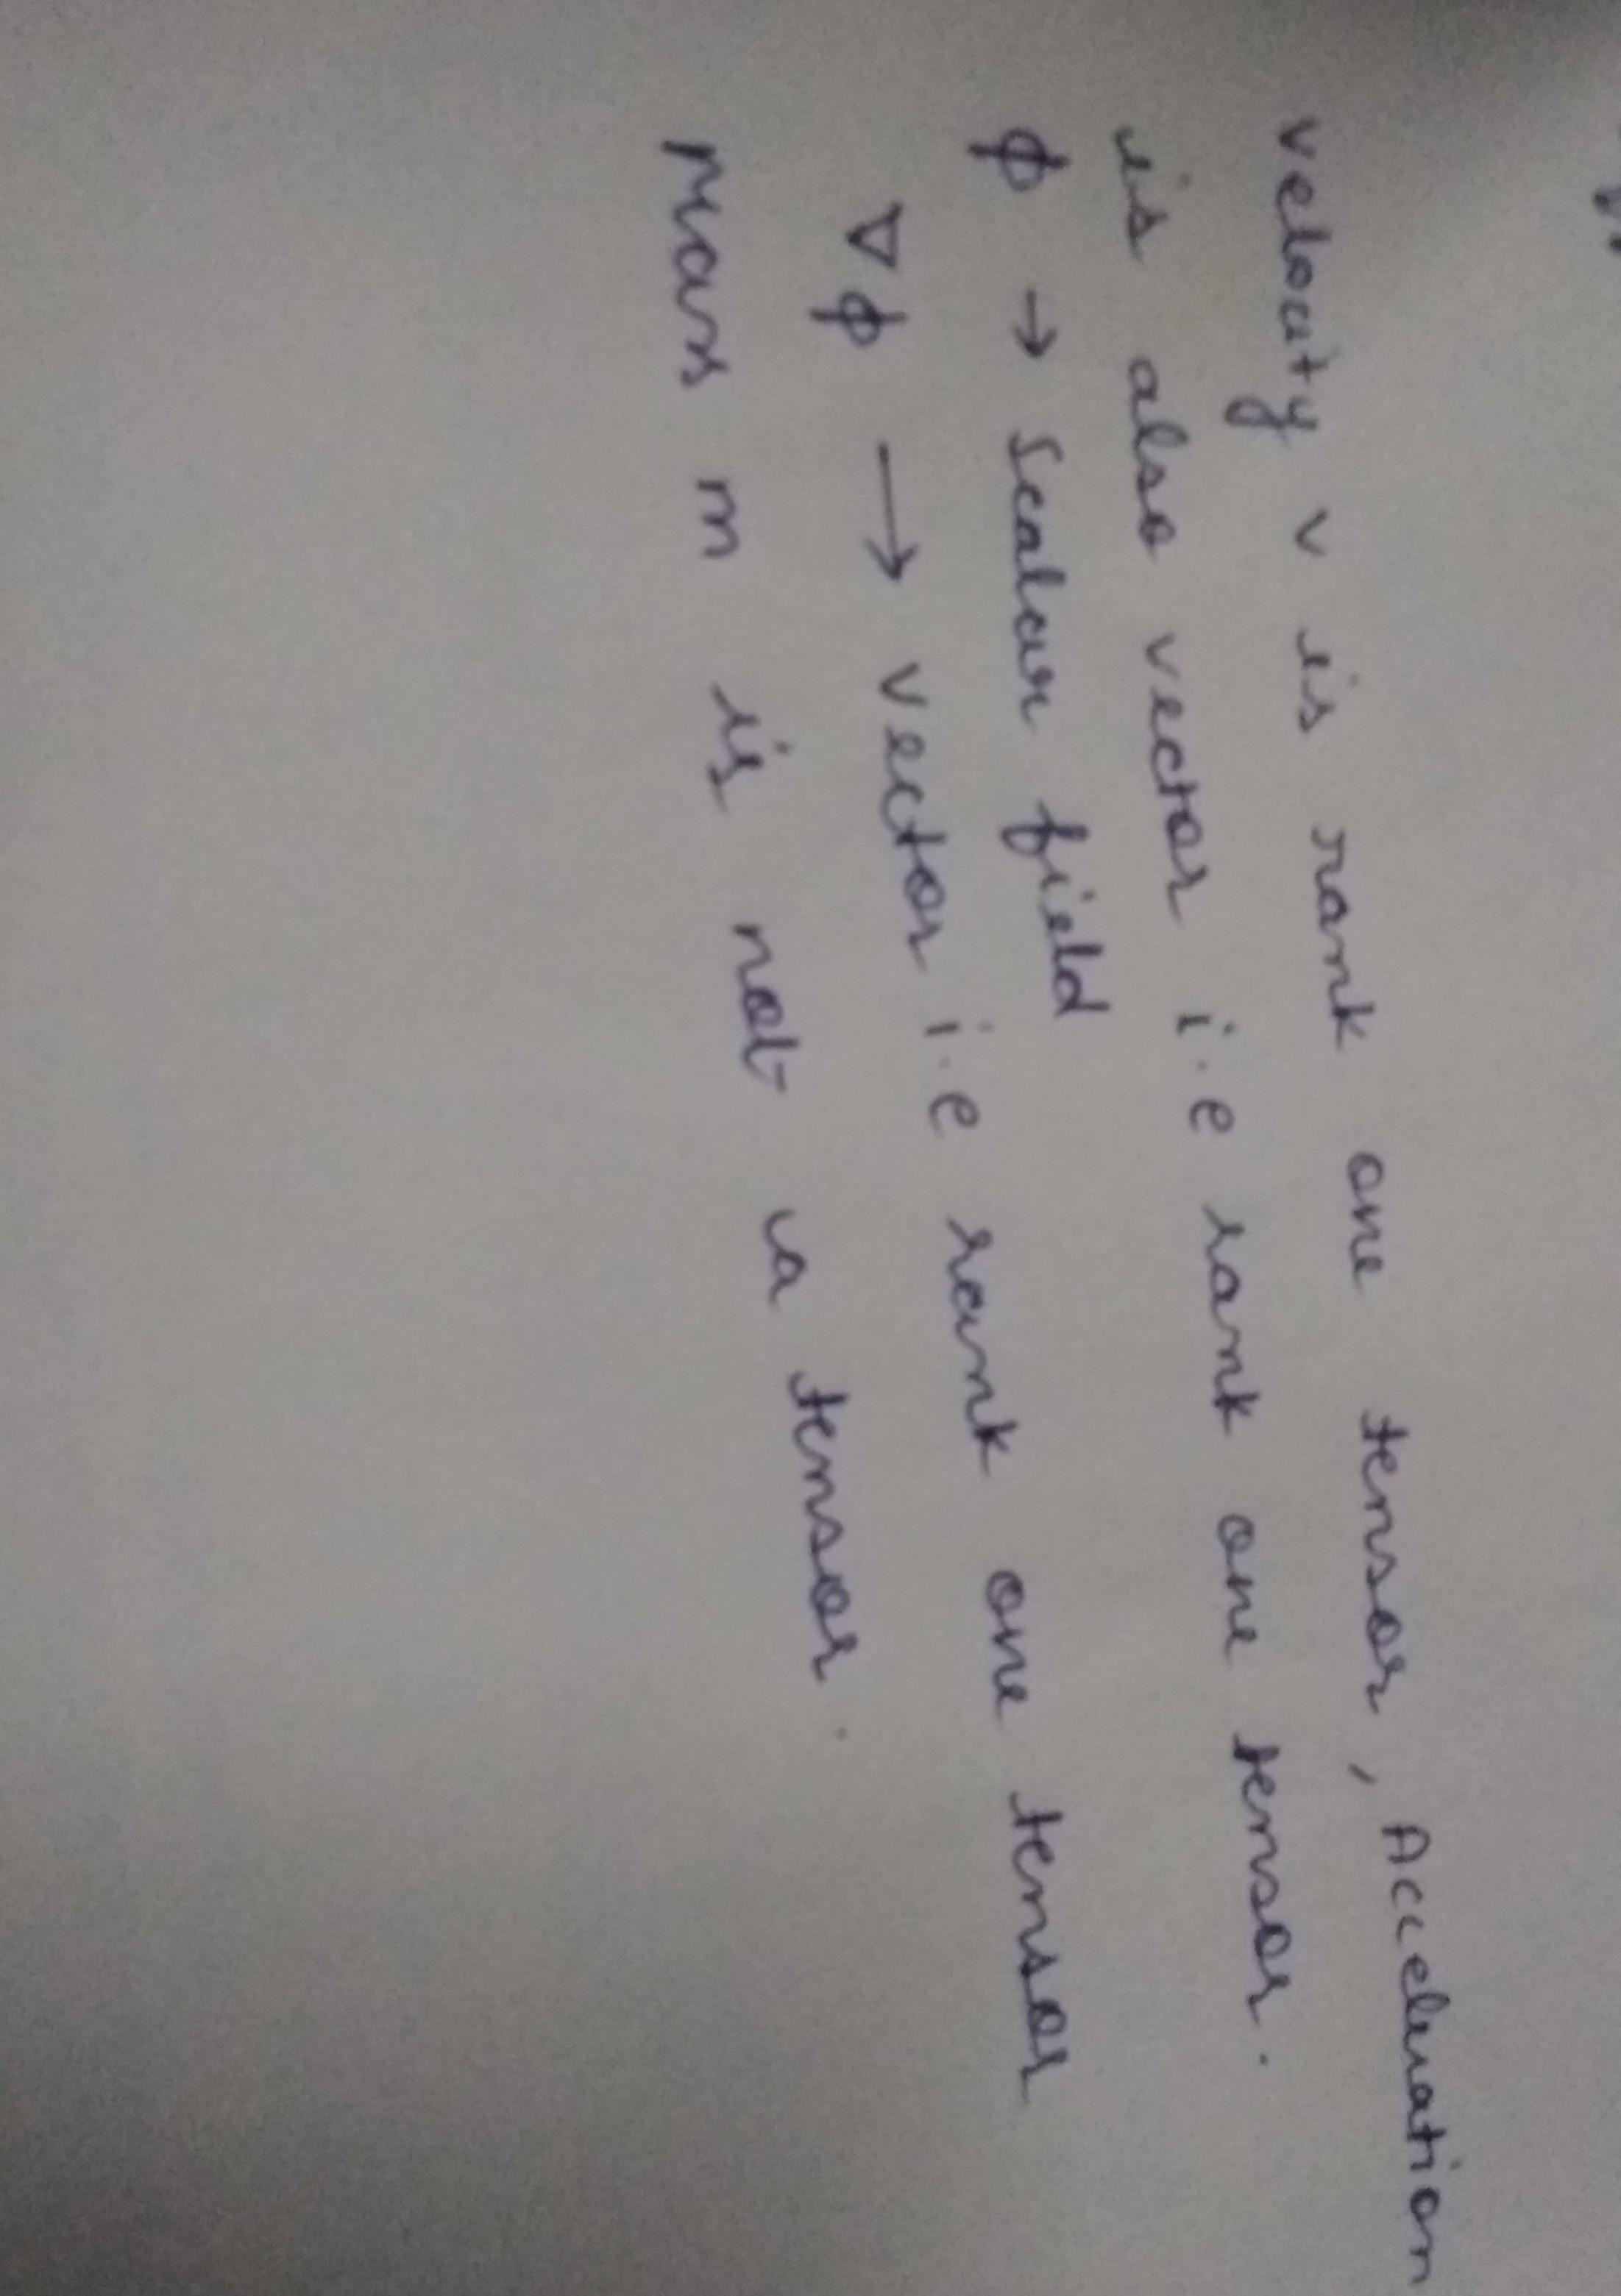 velocity v is rank one tensor, Acceleration
is also vector i.e rank one tensor.
ϕ → scalar field
∇ϕ → vector i.e rank one tensor
Mass m is not a tensor.